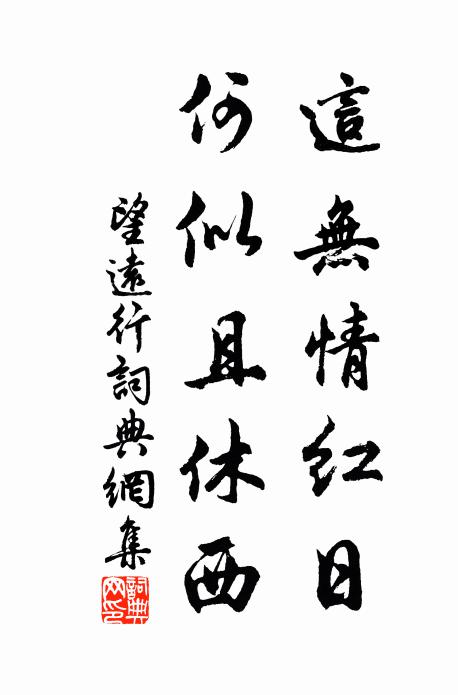 這無情紅日
何似且休西
望遠行詞典網集
詞典網印